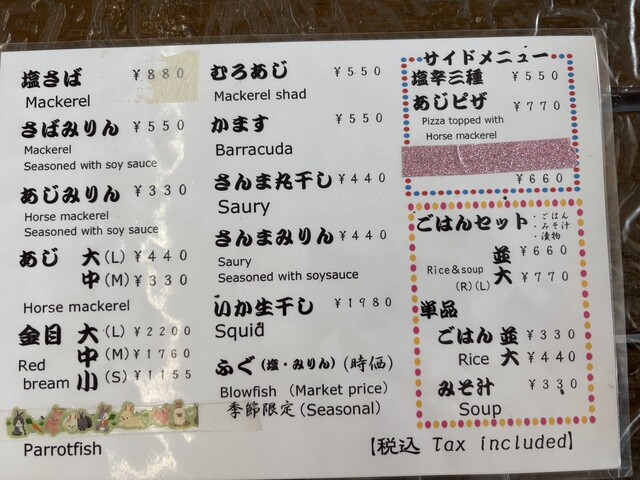 塩さば ¥880
Mackerel
さばみりん ¥550
Mackerel
Seasoned with soy sauce
あじみりん ¥330
Horse mackerel
Seasoned with soy sauce
あじ 大(L) ¥440
中(M) ¥330
Horse mackerel
金目 大(L) ¥2200
Red bream 中(M) ¥1760
小(S) ¥1155
Parrotfish
むろあじ ¥550
Mackerel shad
かます ¥550
Barracuda
さんま丸干し ¥440
Saury
さんまみりん ¥440
Saury
Seasoned with soysauce
いか生干し ¥1980
Squid
ふぐ(塩・みりん)(時価)
Blowfish (Market price)
季節限定(Seasonal)
サイドメニュー
塩辛三種 ¥550
あじピザ ¥770
Pizza topped with
Horse mackerel
¥660
ごはんセット
・ごはん
・みそ汁
・漬物
並 ¥660
Rice&soup 大 ¥770
(R)(L)
単品
ごはん 並 ¥330
Rice 大 ¥440
みそ汁 ¥330
Soup
【税込 Tax included】